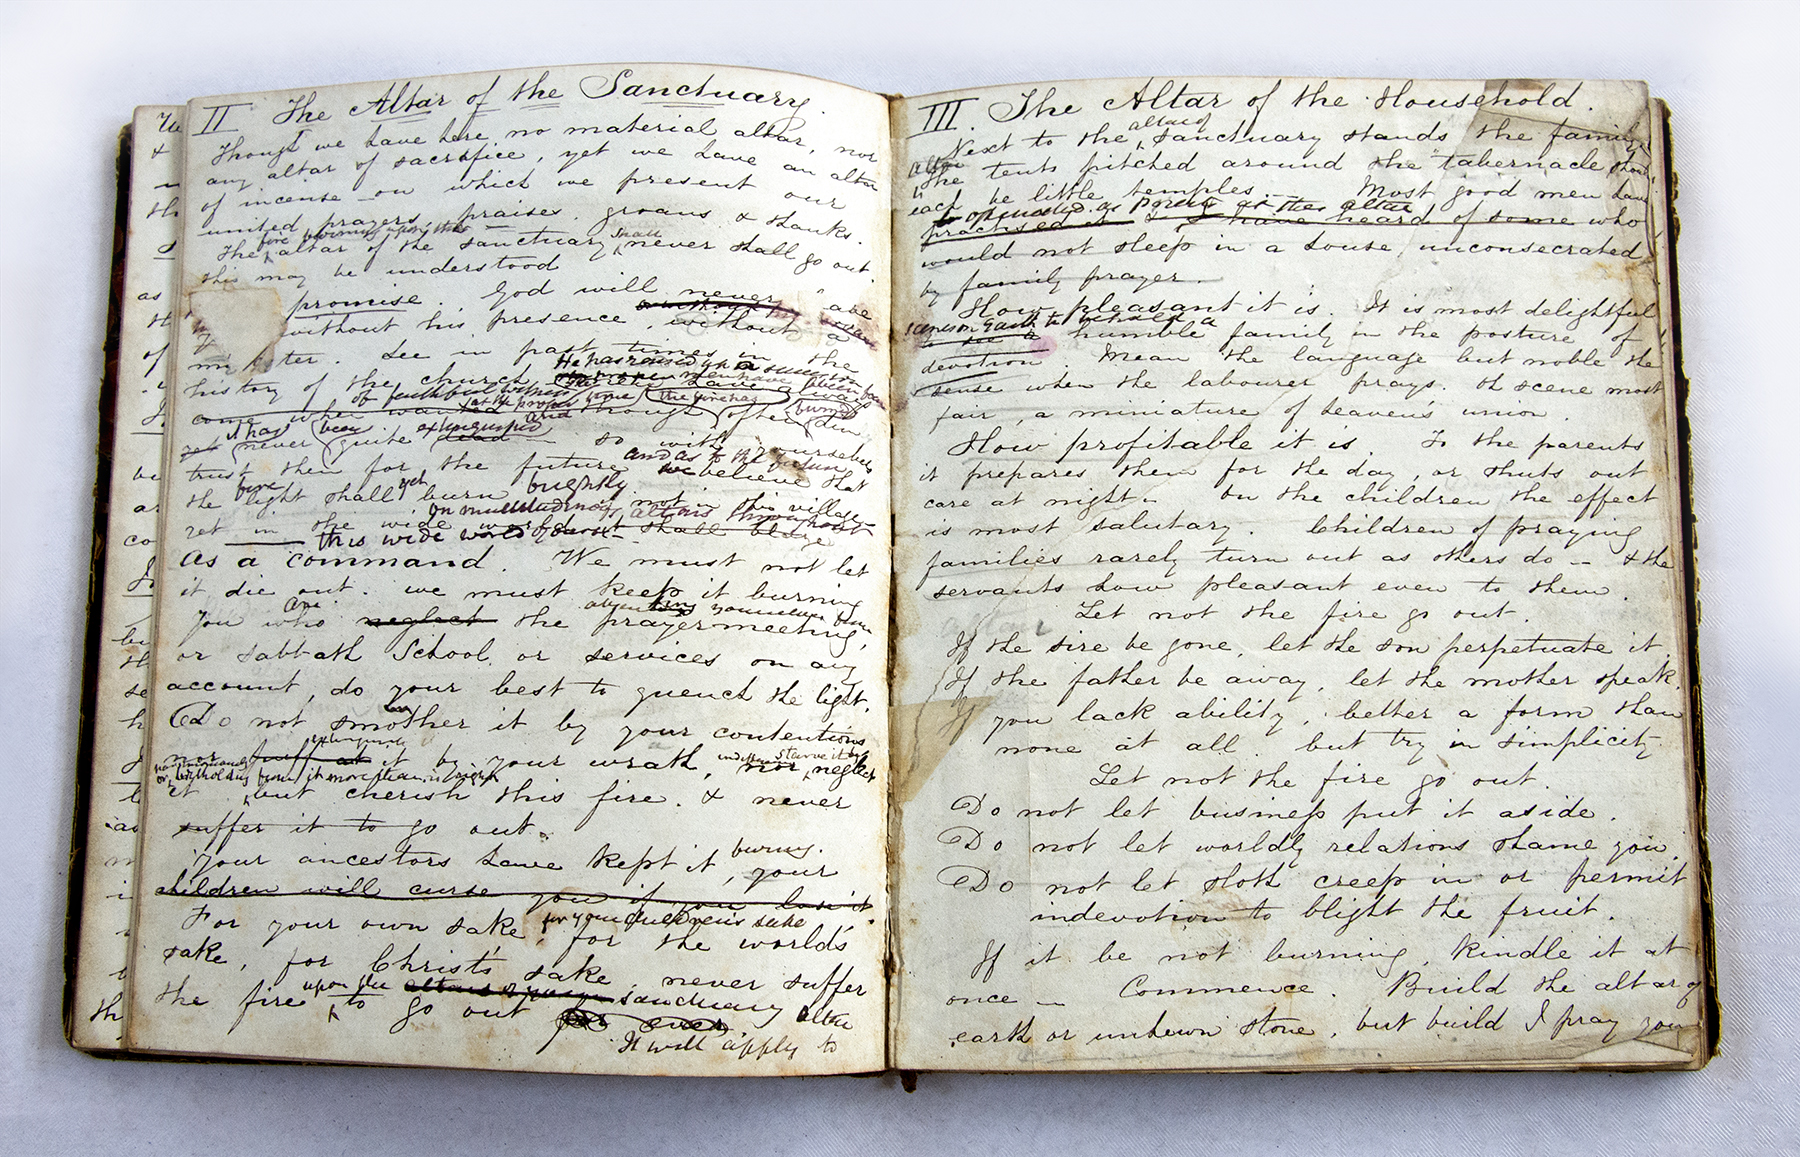 II The Altar of the Sanctuary.
Though we have here no material altar, nor
any altar of sacrifice, yet we have an altar
of incense on which we present our
united prayers praises. groans & thanks.
fire burning upon the shall
The altar of the sanctuary never shall go out.
this may be understood
promise. God will never
without his presence, without a
See in past times in the
He has raised up a succession
history of the church
of faithful witnesses
come when wanted though often dim
it has been the fire has burned
and
yet never quite extinguished dead — so with ourselves
and as to the
trust then for the future we believe that
fire yet
the light shall burn brightly not in this village
on multitudinous altars throughout
yet in the wide world shall blaze
this wide world of ours
As a command. We must not let
it die out. We must keep it burning
are
You who neglect the prayermeeting,
or sabbath School, or services on any
account, do your best to quench the light.
Do not smother it by your contentions
extinguish
nor it by your wrath, nor neglect
starve it by
or withholding from it more than is right
it but cherish this fire. & never
suffer it to go out.
burning.
Your ancestors have kept it, your
children will curse you if you lose it.
for your children's sake
For your own sake, for the world's
sake, for Christ's sake, never suffer
upon the
the fire to go out sanctuary altar
for ever
It will apply to
III. The Altar of the Household.
altar of
Next to the sanctuary stands the family
altar
the tents pitched around the tabernacle should
each be little temples. Most good men have
practised it & I have heard of some who
would not sleep in a house unconsecrated
by family prayer.
How pleasant it is. It is most delightful
to see a humble family in the posture of
devotion. Mean the language but noble the
sense when the labourer prays. Oh scene most
fair, a miniature of heaven's union.
How profitable it is. To the parents
it prepares them for the day, or shuts out
care at night — On the children the effect
is most salutary. Children of praying
families rarely turn out as others do — & the
servants how pleasant even to them.
Let not the fire go out.
If the sire be gone, let the son perpetuate it.
If the father be away, let the mother speak.
If you lack ability, better a form than
none at all. but try in simplicity.
Let not the fire go out.
Do not let business put it aside.
Do not let worldly relations shame you.
Do not let sloth creep in or permit
indevotion to blight the fruit.
If it be not burning, kindle it at
once — Commence. Build the altar of
earth or unhewn stone, but build I pray you